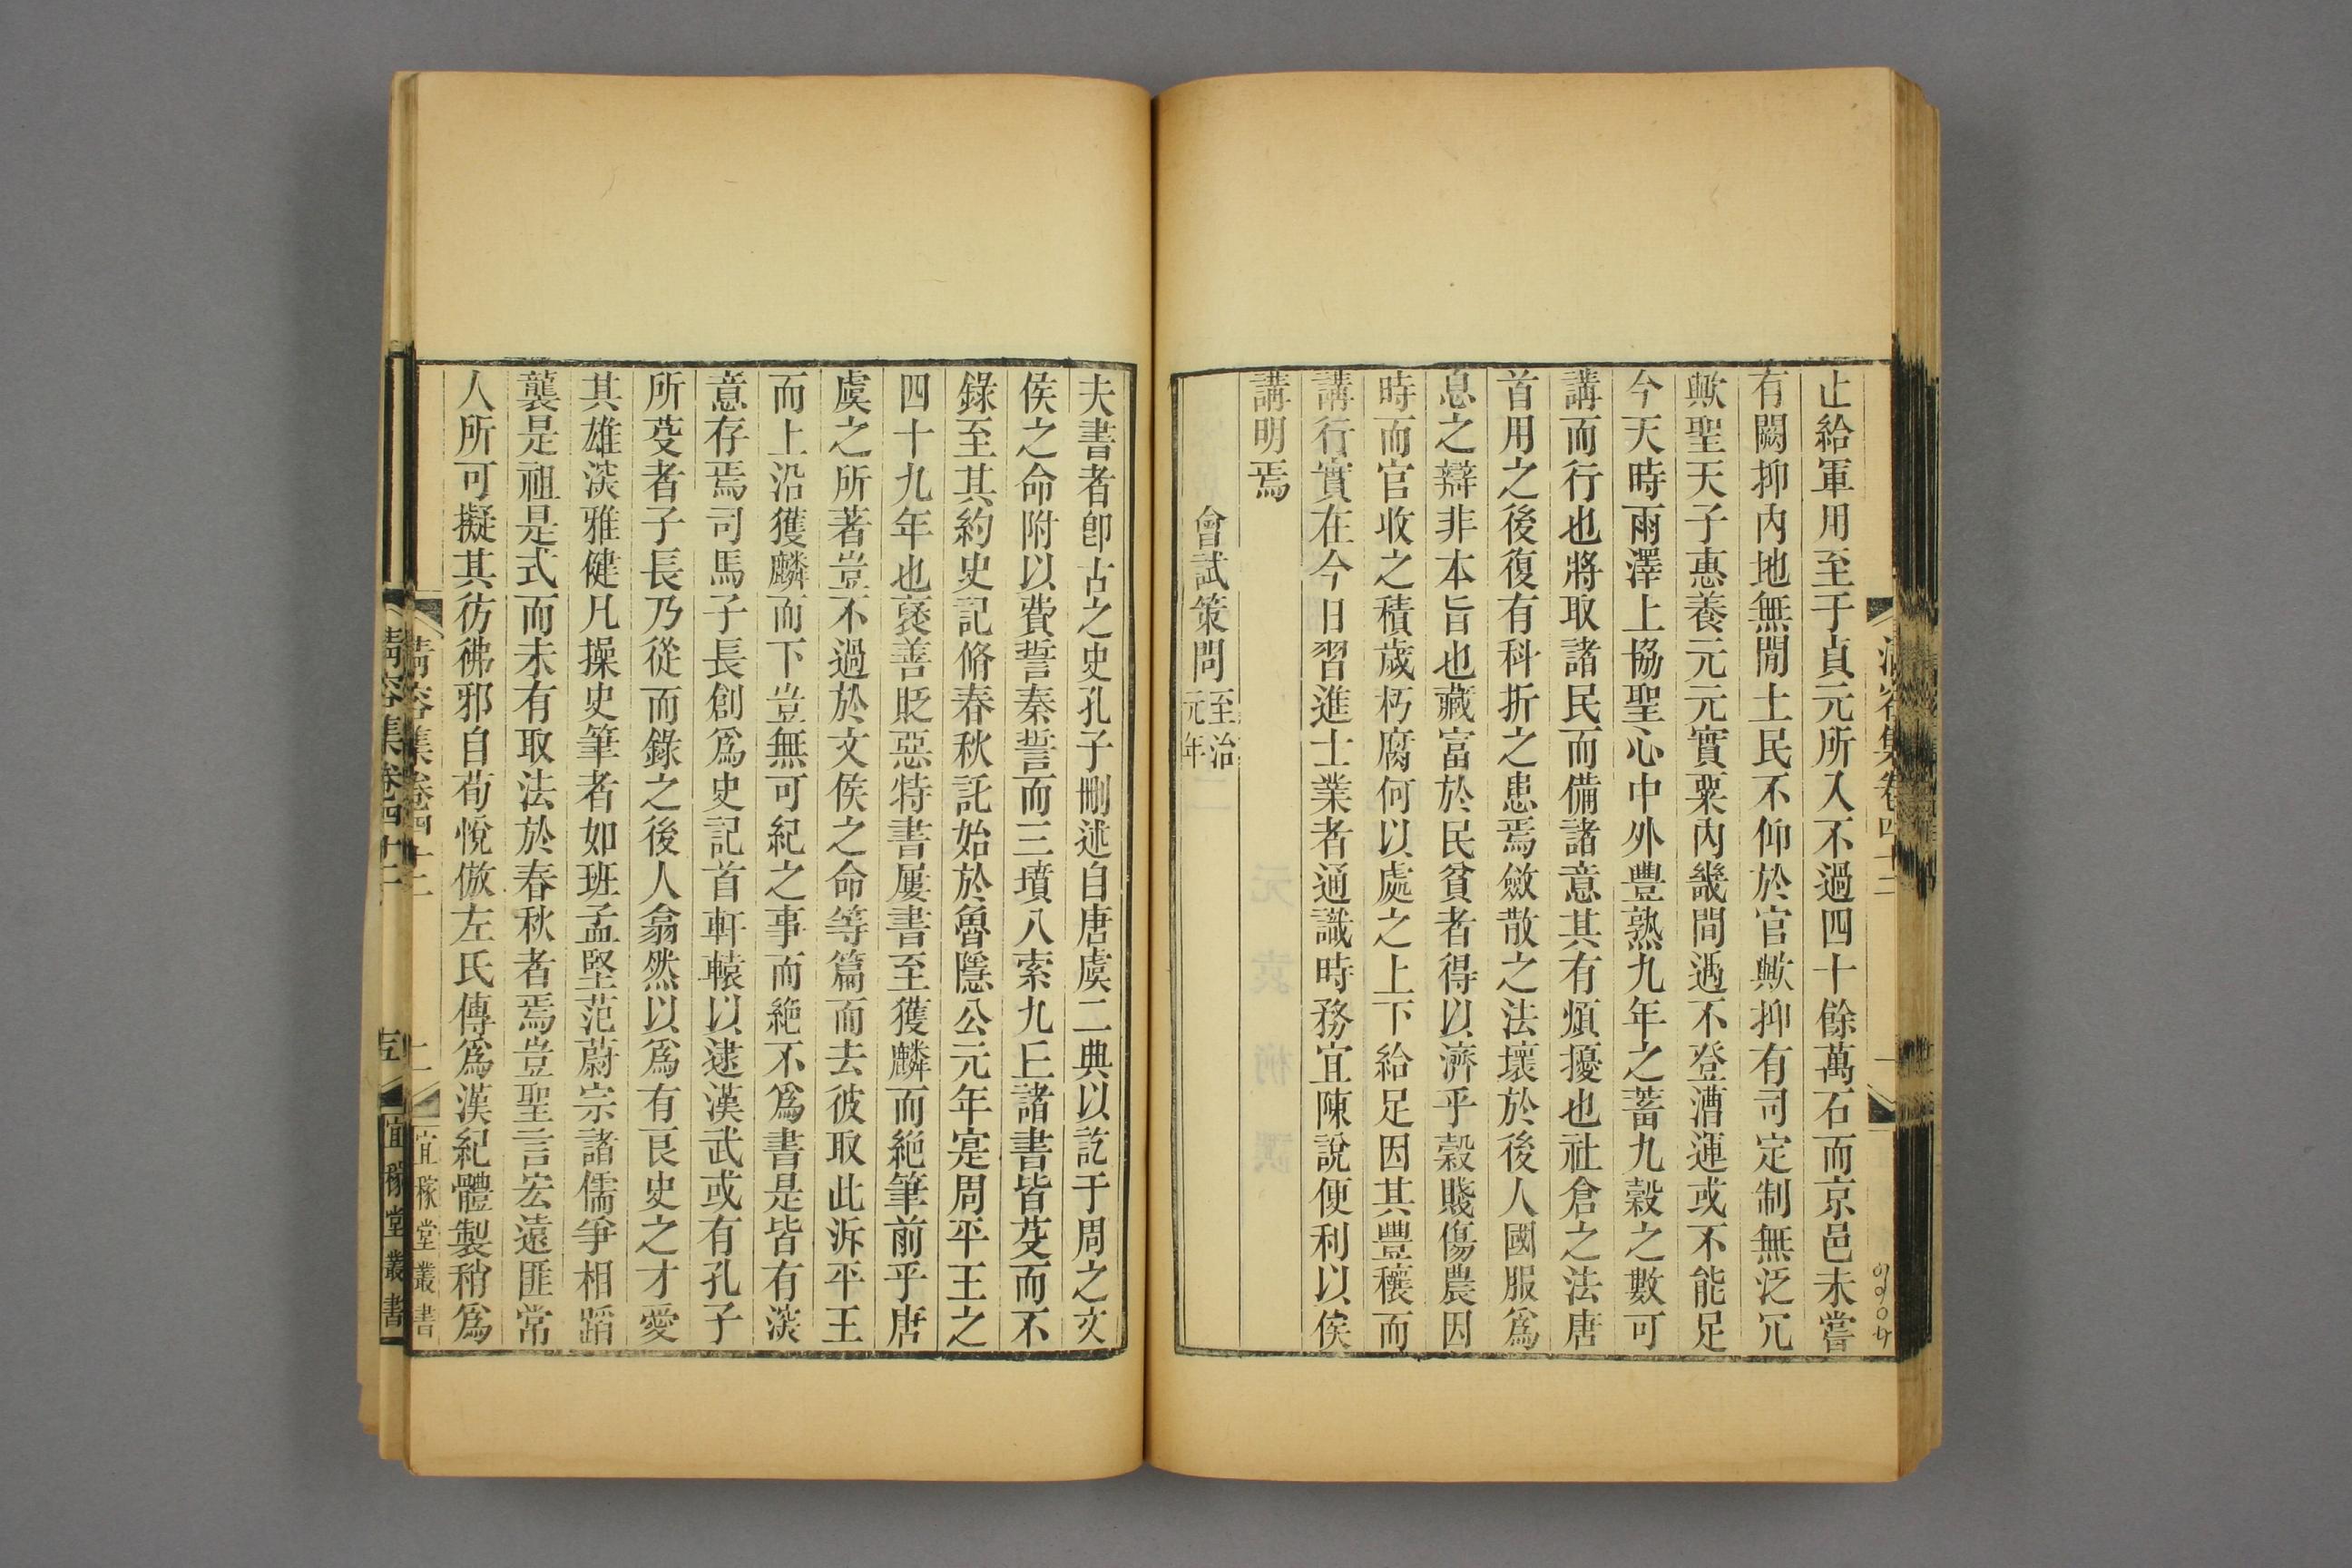 止給軍用至于貞元所入不過四十餘萬石而京邑未嘗
有闕抑內地無閒土民不仰於官歟抑有司定制無泛冗
歟聖天子惠養元元實粟內畿間遇不登漕運或不能足
今天時雨澤上協聖心中外豐熟九年之蓄九穀之數可
講而行也將取諸民而備諸意其有煩擾也社倉之法唐
首用之後復有科折之患焉斂散之法壞於後人國服爲
息之辯非本旨也藏富於民貧者得以濟乎穀賤傷農因
時而官收之積歲朽腐何以處之上下給足因其豐穰而
講行實在今日習進士業者通識時務宜陳說便利以俟
講明焉
會試策問至治元年
夫書者卽古之史孔子刪述自唐虞二典以訖于周之文
侯之命附以費誓秦誓而三墳八索九丘諸書皆芟而不
錄至其約史記脩春秋託始於魯隱公元年寔周平王之
四十九年也襃善貶惡特書屢書至獲麟而絶筆前乎唐
虞之所著豈不過於文侯之命等篇而去彼取此泝平王
而上沿獲麟而下豈無可紀之事而絶不爲書是皆有深
意存焉司馬子長創爲史記首軒轅以逮漢武或有孔子
所芟者子長乃從而錄之後人翕然以爲有良史之才愛
其雄深雅健凡操史筆者如班孟堅范蔚宗諸儒爭相蹈
襲是祖是式而未有取法於春秋者焉豈聖言宏遠匪常
人所可擬其彷彿邪自荀悅倣左氏傳爲漢紀體製稍爲
清容集卷四十二
二
宜稼堂叢書